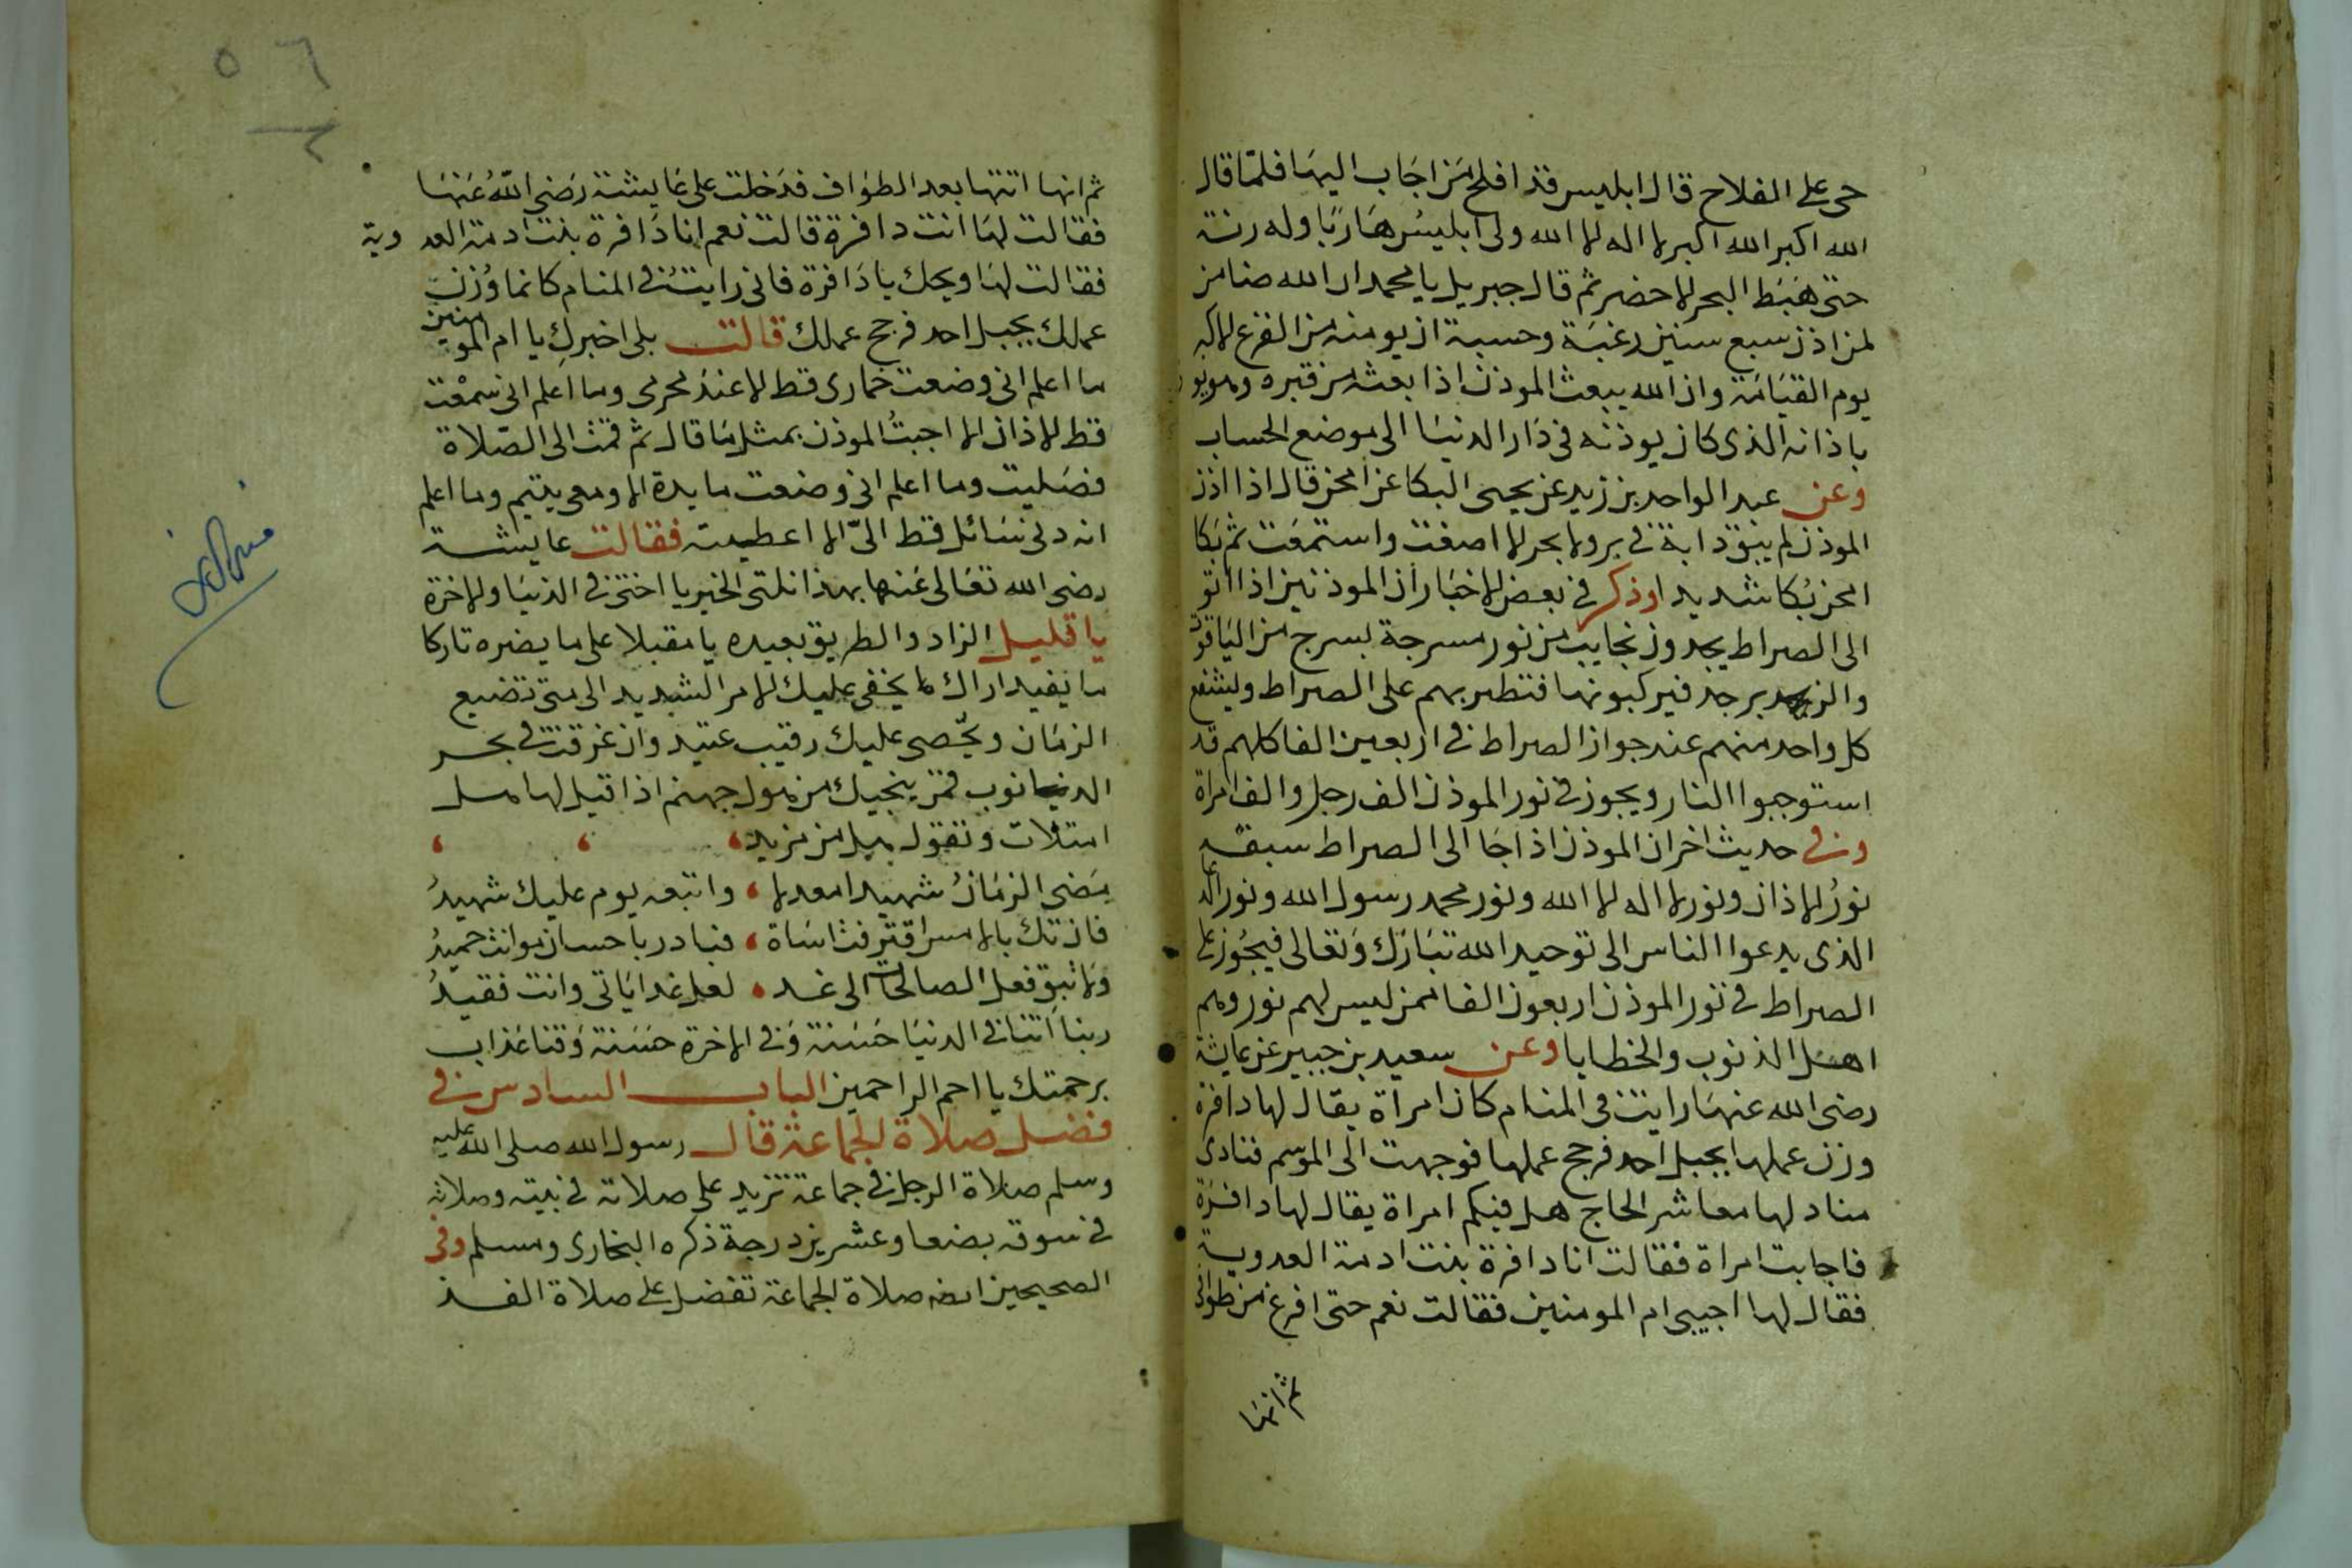 حى على الفلاح قال ابليس قد افلح من اجاب اليها فلما قال
الله اكبر الله اكبر لا اله الا الله ولى ابليس هاربا وله رنة
حتى هبط البحر الاخضر ثم قال جبريل يا محمد ان الله ضامن
لمن اذن سبع سنين رغبة وحسبة ان يومنه من الفزع الاكبر
يوم القيامة وان الله يبعث الموذن اذا بعث من قبره وهو
باذانه الذى كان يوذنه فى دار الدنيا الى موضع الحساب
وعن عبد الواحد بن زيد عن يحيى البكا عن قال اذا اذن
الموذن لم يبق دابة فى بر ولا بحر الا اصغت واستمعت ثم بكا
بكا شديدا وذكر فى بعض الاخبار ان الموذنين اذا اتو
الى الصراط يجدون نجايب من نور مسرجة بسرج من الياقوت
والزبرجد فيركبونها فتطير بهم على الصراط وليشفع
كل واحد منهم عند جواز الصراط فى اربعين الفا كلهم قد
استوجبوا النار ويجوز فى نور الموذن الف رجل والف امراة
وفى حديث اخر ان الموذن اذا جا الى الصراط سبقه
نور الاذان ونور لا اله الا الله ونور محمد رسول الله ونور
الذى يدعوا الناس الى توحيد الله تبارك وتعالى فيجوز على
الصراط فى نور الموذن اربعون الفا ممن ليس لهم نور وهم
اهل الذنوب والخطايا وعن سعيد بن جبير عن عايشة
رضى الله عنها رايت فى المنام كان امراة يقال لها دافرة
وزن عملها بجبل احد فرجح عملها فوجهت الى الموسم فنادى
مناد لها معاشر الحاج هل فيكم امراة يقال لها دافرة
فاجابت امراة فقالت انا دافرة بنت ادمة العدوية
فقال لها اجيبى ام المومنين فقالت نعم حتى افرغ من طوافى
ثم انها
٥٦
ثم انها اتتها بعد الطواف فدخلت على عايشة رضى الله عنها
فقالت لها انت دافرة قالت نعم انا دافرة بنت ادمة العدوية
فقالت لها ويحك يا دافرة فانى رايت فى المنام كانما وزن
عملك بجبل احد فرجح عملك قالت بلى اخبرك يا ام المومنين
ما اعلم انى وضعت خمارى قط الا عند محرمى وما اعلم انى سمعت
قط الاذان الا اجبت الموذن بمثل ما قال ثم قمت الى الصلاة
فصليت وما اعلم انى وضعت مايدة الا ومعى يتيم وما اعلم
انه دنى سائل قط الى الا اعطيته فقالت عايشة
رضى الله تعالى عنها بهذا نلتى الخير يا اختى فى الدنيا والاخرة
يا قليل الزاد والطريق بعيده يا مقبلا على ما يضره تاركا
ما يفيد اراك ما يخفى عليك الامر الشديد الى متى تضيع
الزمان ويحصى عليك رقيب عتيد وان غرقت فى بحر
فمن ينجيك من هول جهنم اذا قيل لها هل
امتلات وتقول هل من مزيد
مضى الزمان شهيدا معدلا واتبعه يوم عليك شهيد
فان تك بالامس اقترفت اساة فبادر باحسان وانت حميد
ولا تبق فعل الصالحات الى غد لعل غدا ياتى وانت فقيد
ربنا اتنا فى الدنيا حسنة وفى الاخرة حسنة وقنا عذاب
برحمتك يا ارحم الراحمين الباب السادس فى
فضل صلاة الجماعة قال رسول الله صلى الله عليه
وسلم صلاة الرجل فى جماعة تزيد على صلاته فى بيته وصلاته
فى سوقه بضعا وعشرين درجة ذكره البخارى ومسلم وفى
الصحيحين صلاة الجماعة تفضل على صلاة الفذ